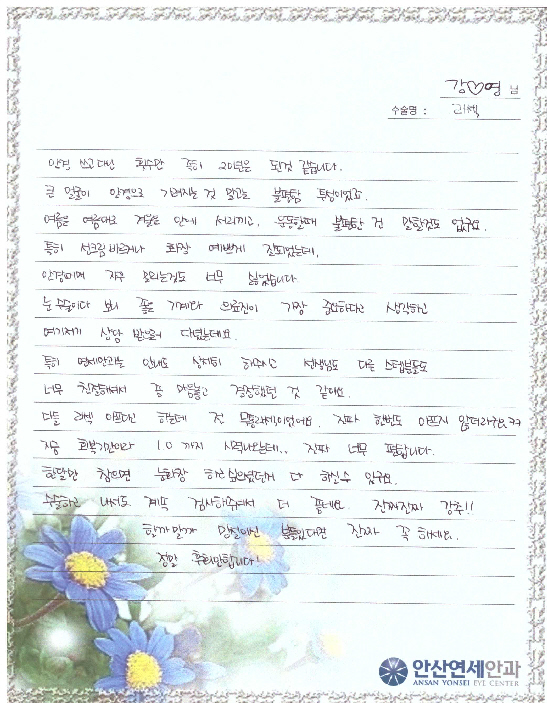 강♡영 님
수술명 : 라섹
안경 쓰고 다닌 횟수만 족히 20년은 된것 같습니다.
큰 얼굴이 안경으로 가려지는 것 말고는 불편함 투성이었죠.
여름은 여름대로 겨울은 안에 서리끼고, 운동할때 불편한 건 말할것도 없구요.
특히 선크림 바르거나 화장 예쁘게 잘되었는데,
안경에 자꾸 눌리는것도 너무 싫었습니다.
눈 수술이다 보니 좋은 기계와 의료진이 가장 중요하다고 생각하고
여기저기 상담 받으러 다녔는데요.
특히 연세안과는 안내도 상세히 해주시고 선생님도 다른 스텝분들도
너무 친절하셔서 좀 마음놓고 결정했던 것 같아요.
다들 라섹 아프다고 하는데 전 무통라섹이었어요. 진짜 한번도 아프지 않더라구요.ㅋㅋ
지금 회복기간이라 1.0 까지 시력나오는데.. 진짜 너무 편합니다.
한달만 참으면 눈화장 하고싶으셨던거 다 하실수 있구요.
수술하고 나서도 계속 검사해주셔서 더 좋네요. 진짜진짜 강추!!
할까말까 망설이신 분들있다면 진짜 꼭 하세요.
정말 후회안합니다!
안산연세안과
ANSAN YONSEI EYE CENTER